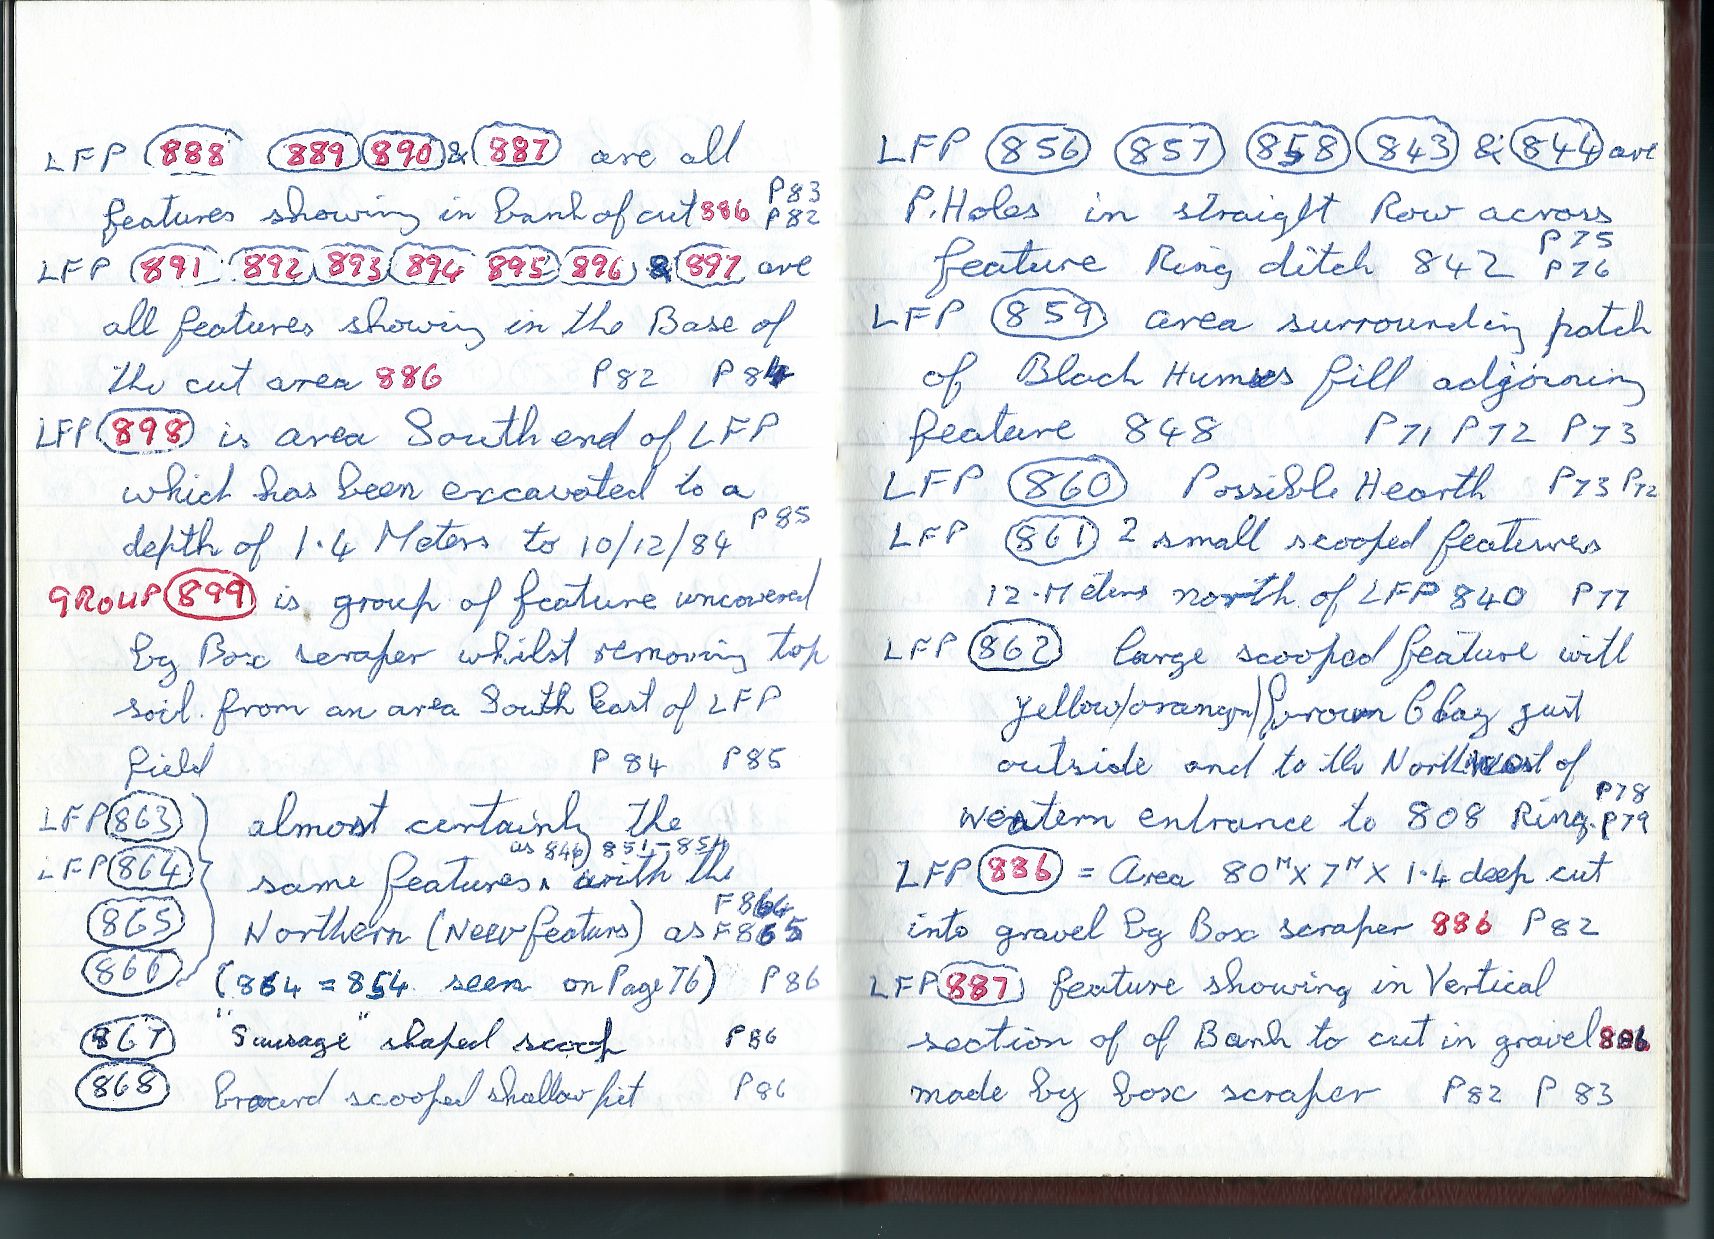 LFP 888 889 890 & 887 are all
features showing in bank of cut 886 P83 P82
LFP 891 892 893 894 895 896 & 897 are
all features showing in the Base of
the cut area 886 P82 P84
LFP 898 is area South end of LFP
which has been excavated to a
depth of 1.4 Meters to 10/12/84 P85
GROUP 899 is group of feature uncovered
by Box scraper whilst removing top
soil. from an area South East of LFP
field P84 P85
LFP 863 almost certainly the
as 846) 851-854
LFP 864 same features with the
F864
865 Northern (New featurs) as F865
866 (864 = 854 seen on Page 76) P86
867 "Sausage" shaped scoop P86
868 scooped shallow pit P86
LFP 856 857 858 843 & 844 are
P.Holes in straight Row across
feature Ring ditch 842 P75 P76
LFP 859 area surrounding patch
of Black Humus fill adjoining
feature 848 P71 P72 P73
LFP 860 Possible Hearth P73 P72
LFP 861 2 small scooped features
12.Meters north of LFP 840 P77
LFP 862 large scooped feature with
yellow/orange/brown Clay just
outside and to the Northwest of
Western entrance to 808 Ring. P78 P79
LFP 886 = Area 80M X 7M X 1.4 deep cut
into gravel by Box scraper 886 P82
LFP 887 feature showing in Vertical
section of of Bank to cut in gravel 886
made by box scraper P82 P83